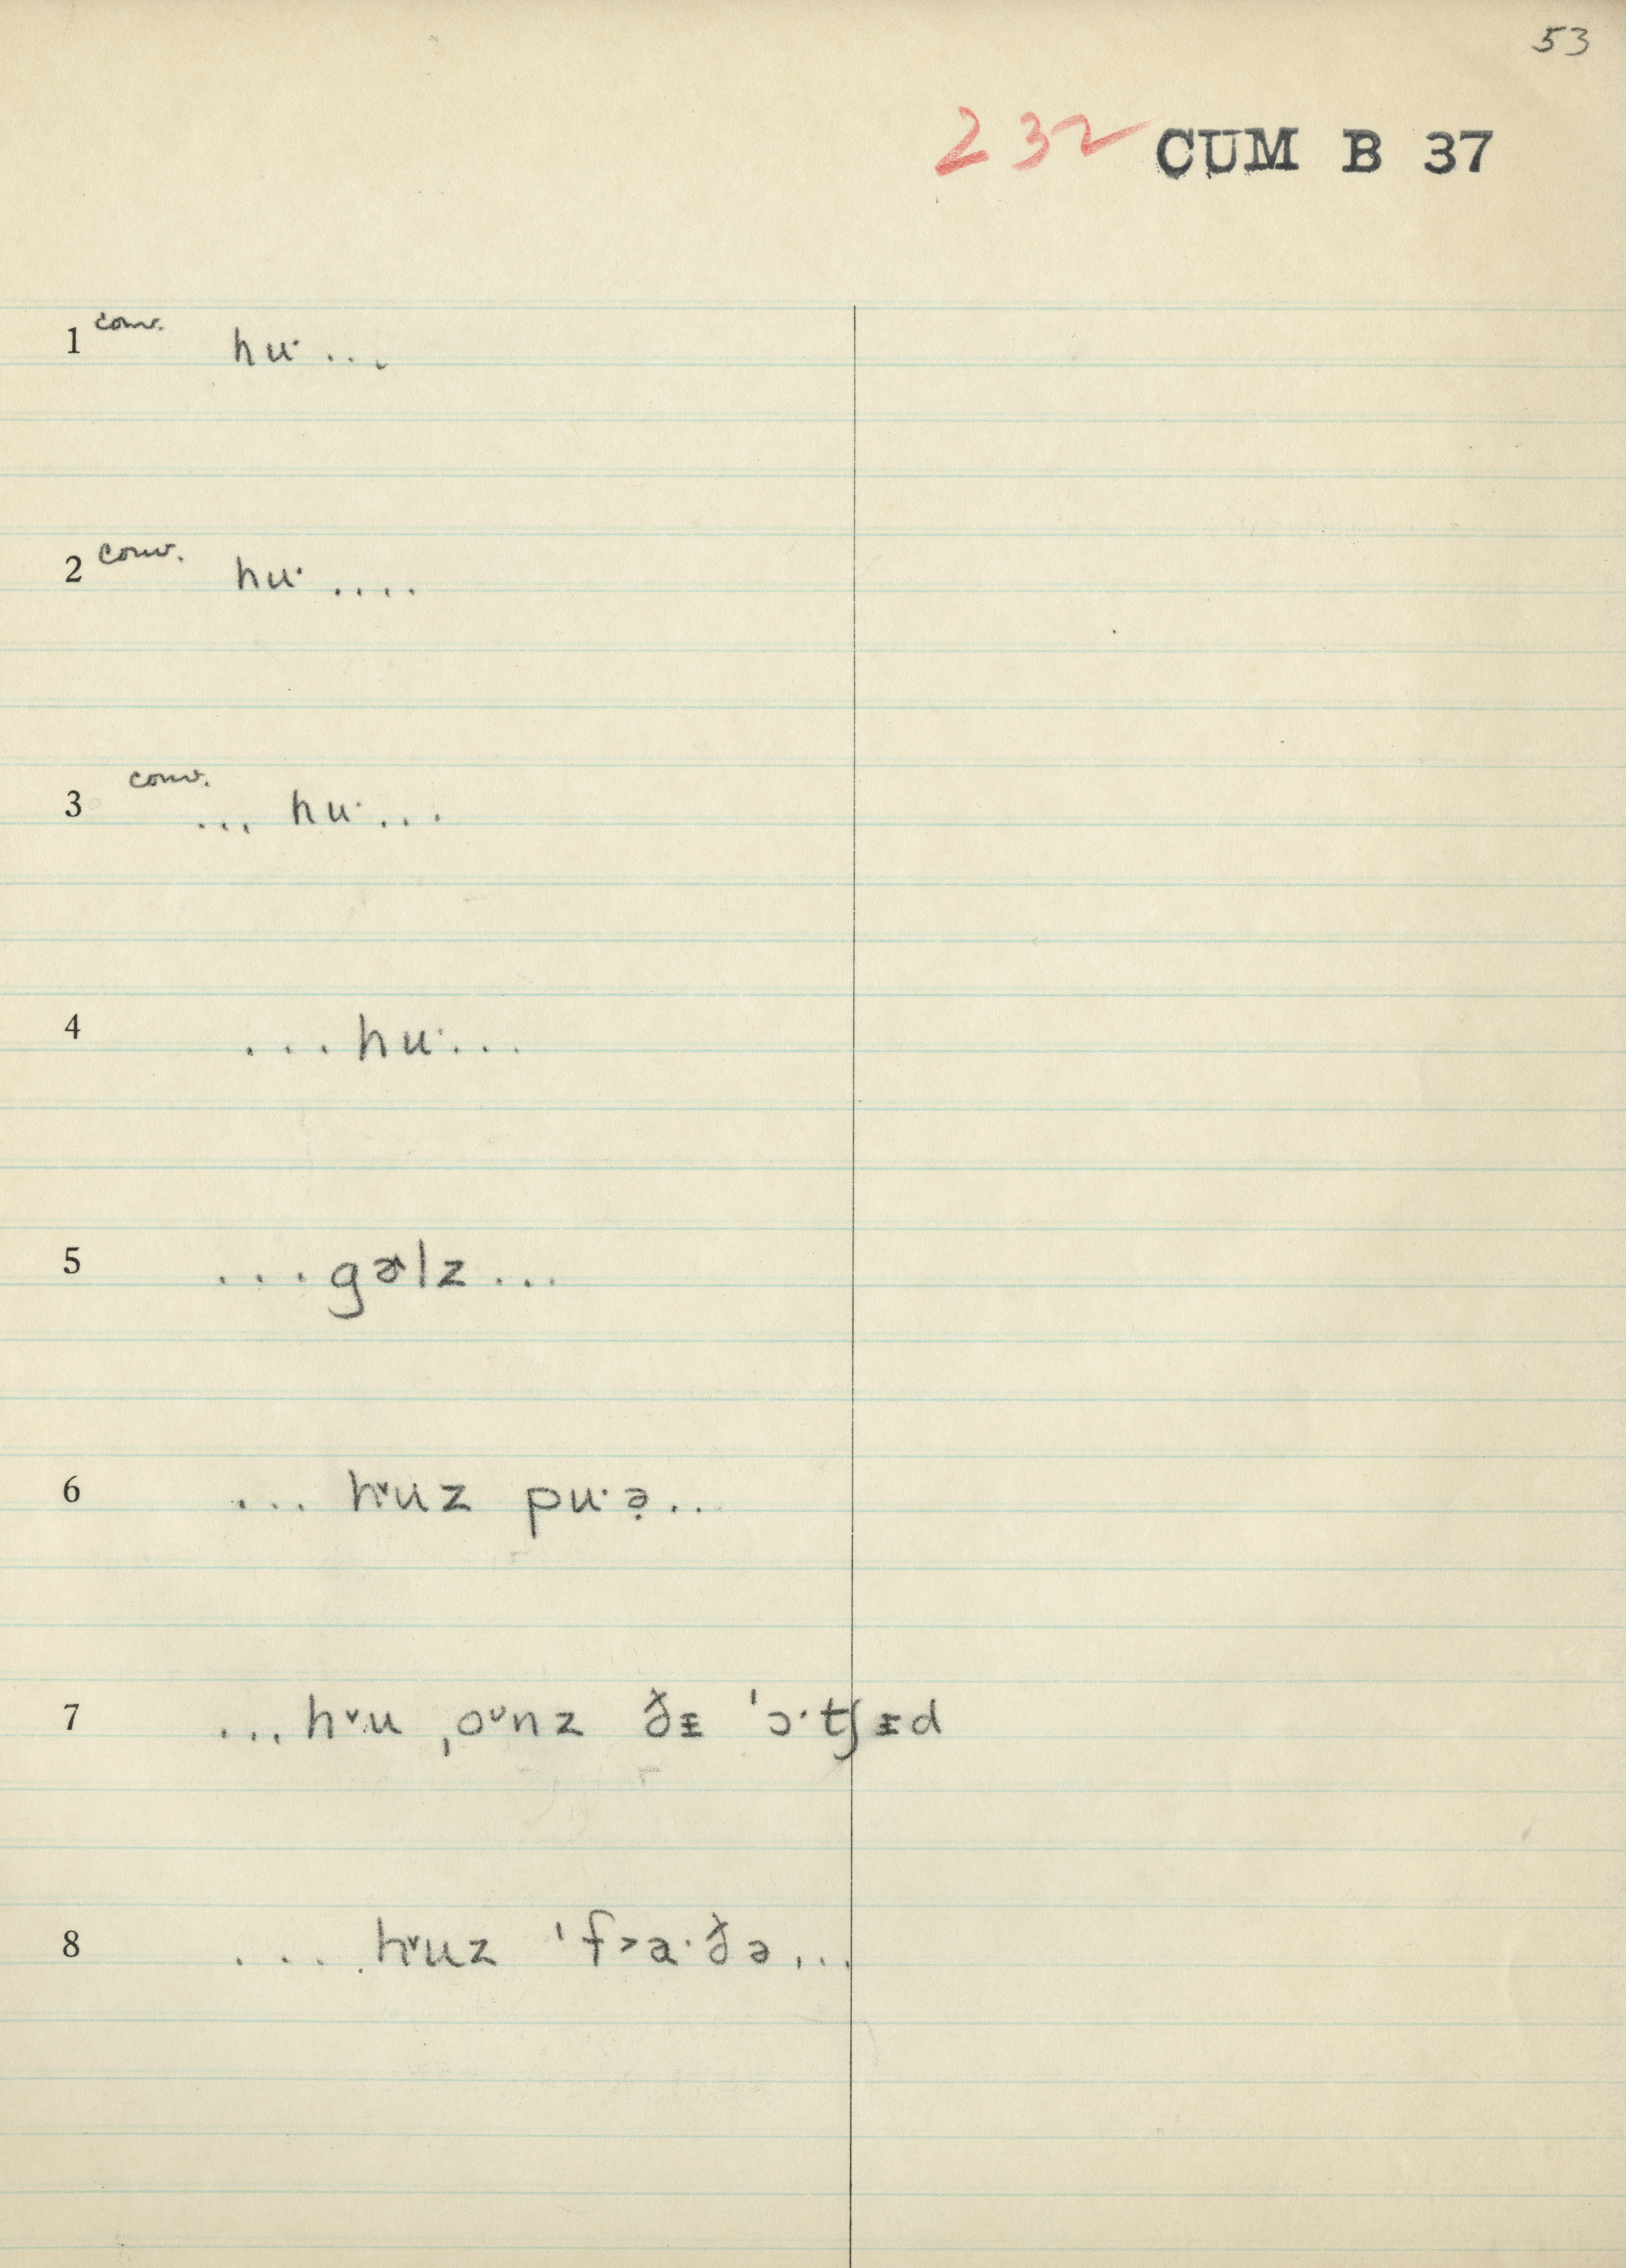 53
232 CUM B 37
1 conv. huˑ ...
2 conv. huˑ ....
3 conv. ... huˑ ...
4 ... huˑ ...
5 ... gɚlz ...
6 ... hᵛuz puˑə̣ ..
7 ... hᵛu ˌoᵛnz ðᵻ ˈɔˑtʃᵻd
8 .... hᵛuz ˈf˃aˑðə ...